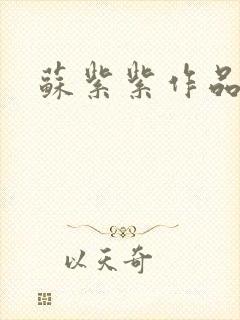 蘇紫紫作品
以天奇